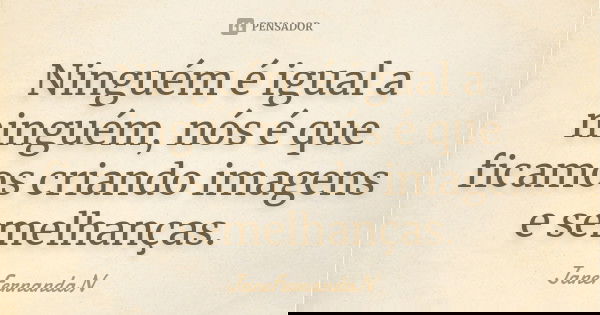 PENSADOR
Ninguém é igual a
ninguém, nós é que
ficamos criando imagens
e semelhanças.
Jane Fernanda.N